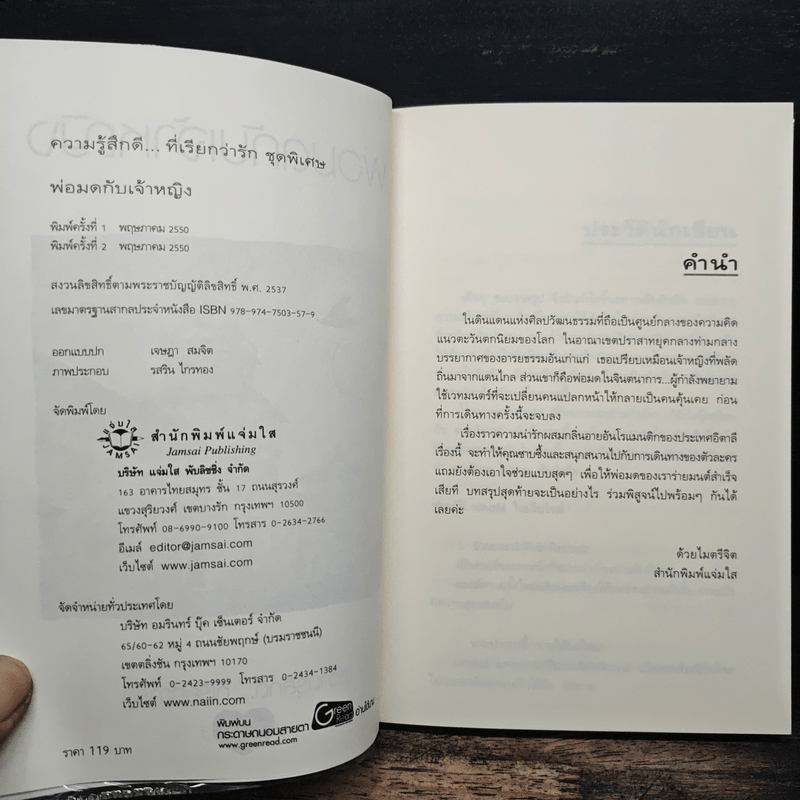 ความรู้สึกดี... ที่เรียกว่ารัก ชุดพิเศษ
พ่อมดกับเจ้าหญิง
พิมพ์ครั้งที่ 1 พฤษภาคม 2550
พิมพ์ครั้งที่ 2 พฤษภาคม 2550
สงวนลิขสิทธิ์ตามพระราชบัญญัติลิขสิทธิ์ พ.ศ. 2537
เลขมาตรฐานสากลประจำหนังสือ ISBN 978-974-7503-57-9
ออกแบบปก เจษฎา สมจิต
ภาพประกอบ รสริน ไกรทอง
จัดพิมพ์โดย
แจ่มใส
JAMSAI
สำนักพิมพ์แจ่มใส
Jamsai Publishing
บริษัท แจ่มใส พับลิชชิ่ง จำกัด
163 อาคารไทยสมุทร ชั้น 17 ถนนสุรวงศ์
แขวงสุริยวงศ์ เขตบางรัก กรุงเทพฯ 10500
โทรศัพท์ 08-6990-9100 โทรสาร 0-2634-2766
อีเมล์ editor@jamsai.com
เว็บไซต์ www.jamsai.com
จัดจำหน่ายทั่วประเทศโดย
บริษัท อมรินทร์ บุ๊ค เซ็นเตอร์ จำกัด
65/60-62 หมู่ 4 ถนนชัยพฤกษ์ (บรมราชชนนี)
เขตตลิ่งชัน กรุงเทพฯ 10170
โทรศัพท์ 0-2423-9999 โทรสาร 0-2434-1384
เว็บไซต์ www.naiin.com
พิมพ์บน
กระดาษถนอมสายตา
www.greenread.com
Green Read
ราคา 119 บาท
คำนำ
ในดินแดนแห่งศิลปวัฒนธรรมที่ถือเป็นศูนย์กลางของความคิด
แนวตะวันตกนิยมของโลก ในอาณาเขตปราสาทยุคกลางท่ามกลาง
บรรยากาศของอารยธรรมอันเก่าแก่ เธอเปรียบเหมือนเจ้าหญิงที่พลัด
ถิ่นมาจากแดนไกล ส่วนเขาก็คือพ่อมดในจินตนาการ...ผู้กำลังพยายาม
ใช้เวทมนตร์ที่จะเปลี่ยนคนแปลกหน้าให้กลายเป็นคนคุ้นเคย ก่อน
ที่การเดินทางครั้งนี้จะจบลง
เรื่องราวความน่ารักผสมกลิ่นอายอันโรแมนติกของประเทศอิตาลี
เรื่องนี้ จะทำให้คุณซาบซึ้งและสนุกสนานไปกับการเดินทางของตัวละคร
แถมยังต้องเอาใจช่วยแบบสุดๆ เพื่อให้พ่อมดของเราร่ายมนต์สำเร็จ
เสียที บทสรุปสุดท้ายจะเป็นอย่างไร ร่วมพิสูจน์ไปพร้อมๆ กันได้
เลยค่ะ
ด้วยไมตรีจิต
สำนักพิมพ์แจ่มใส